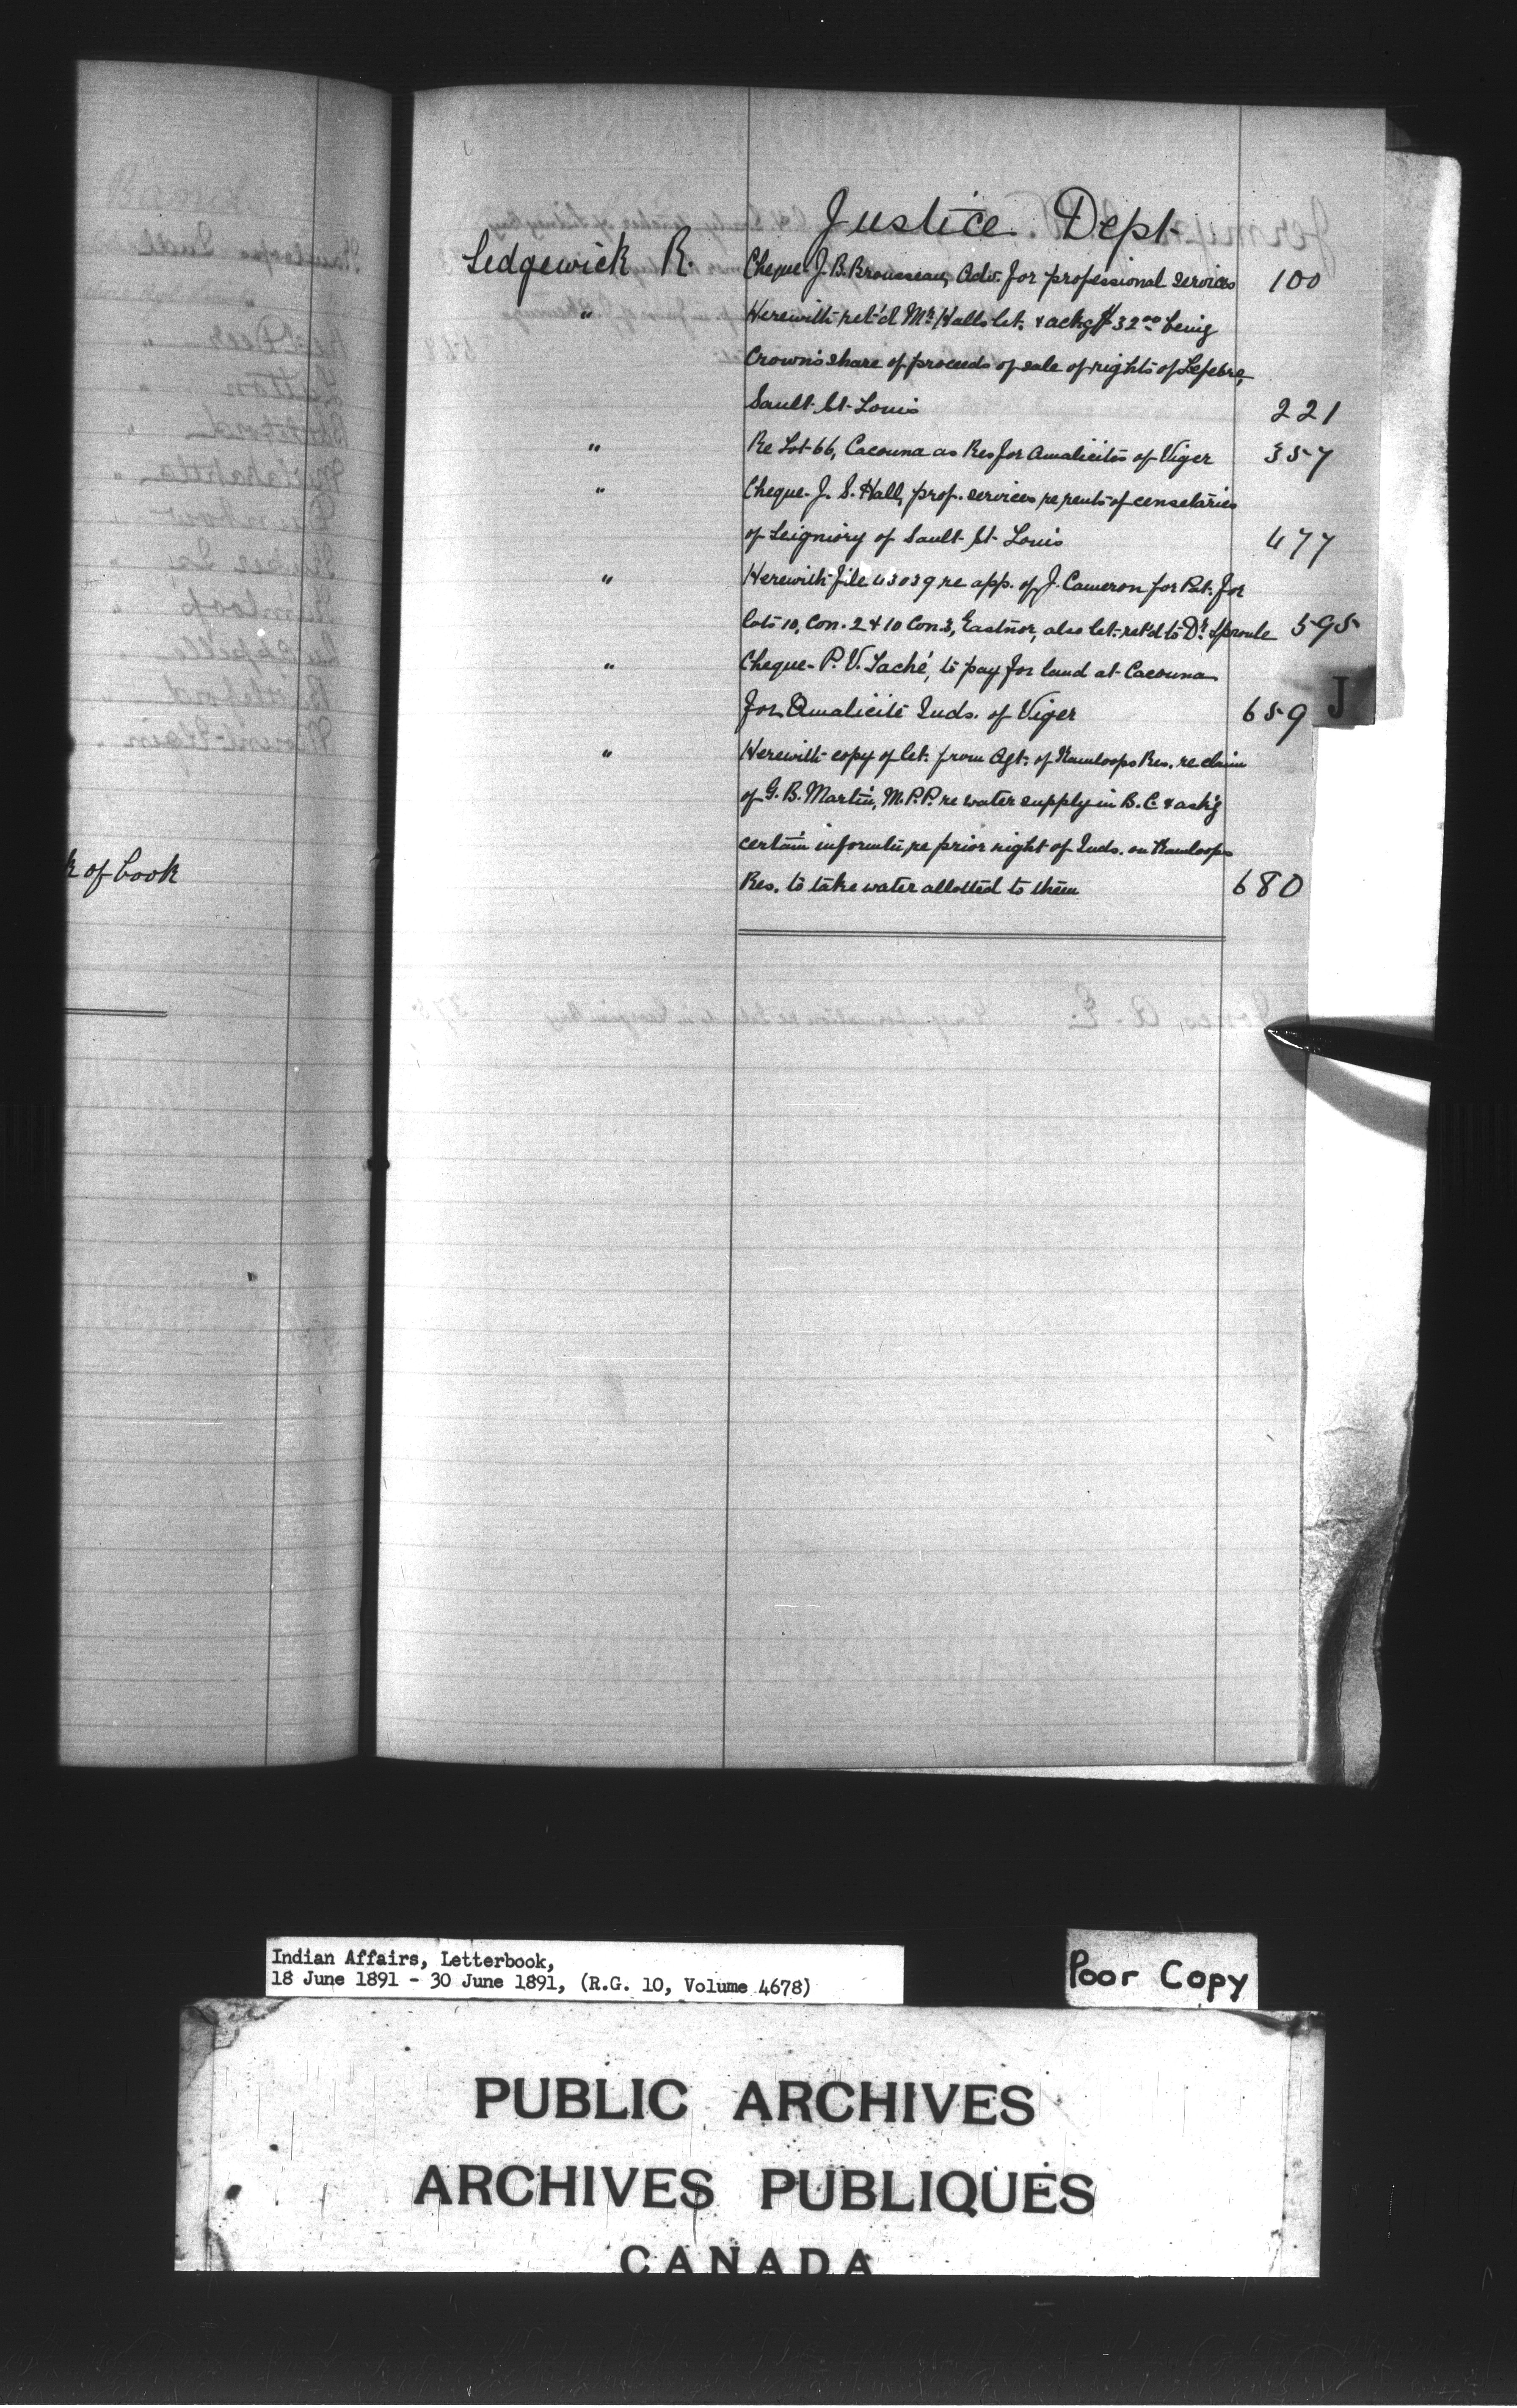 Justice Dept
Sedgewick R. Cheque J. B. Brousseau, Adv. for professional services 100
" Herewith ret'd Mr Halls let. & ackg $32.00 being
Crown's share of proceeds of sale of rights of Lefebre,
Sault St Louis 221
" Re Lot 66, Cacouna as Res for Amalicites of Viger 357
" Cheque J. S. Hall, prof. services re rents of censetaries
of Seigniory of Sault St Louis 477
" Herewith file 43039 re app. of J. Cameron for Pat. for
lots 10, Con. 2 & 10 Con. 3, Eastnor, also let. ret'd to Dr. Sproule 595
" Cheque P. V. Taché, to pay for land at Cacouna
for Amalicite Inds. of Viger 659
J
" Herewith copy of let. from Agt. of Kamloops Res. re claim
of G. B. Martin, M.P.P. re water supply in B.C. & ask'g
certain informtn re prior right of Inds. on Kamloops
Res. to take water allotted to them 680
of book
Indian Affairs, Letterbook,
18 June 1891 - 30 June 1891, (R.G. 10, Volume 4678)
Poor Copy
PUBLIC ARCHIVES
ARCHIVES PUBLIQUES
CANADA